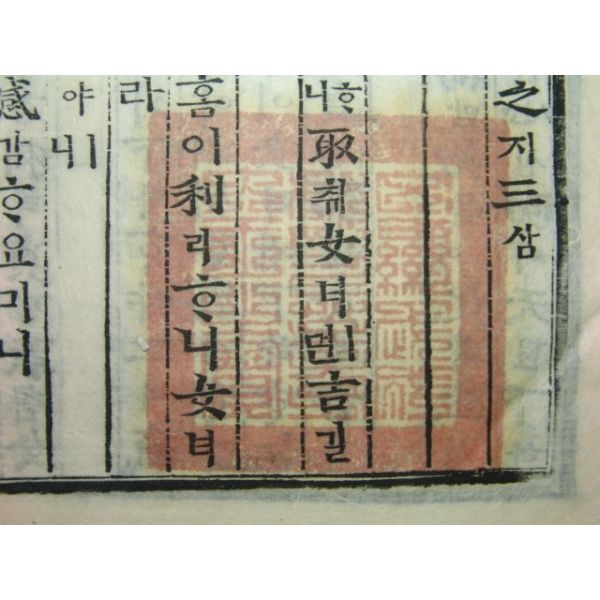 之지三삼
ᄒᆞ니取취女녀ㅣ면吉길
홈이利리ᄒᆞ니女녀
라
야ㅣ니
感감ᄒᆞ요미니